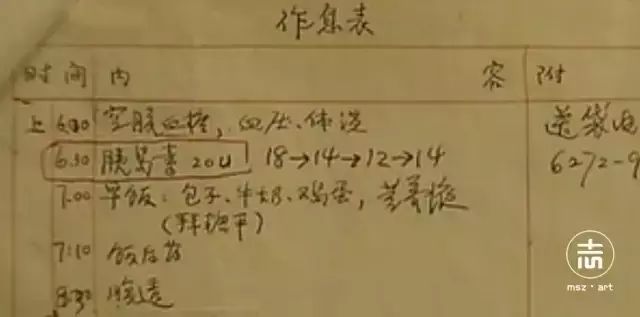 作息表
时间 内 容 附
上 6:00 空腹血糖，血压、体温
6:30 胰岛素 20U 18→14→12→14 6272-9
7:00 早饭：包子、牛奶、鸡蛋，苦荞
(拜糖平)
7:10 饭后药
8:30
msz·art